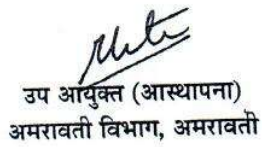 उप आयुक्त (आस्थापना)
अमरावती विभाग, अमरावती